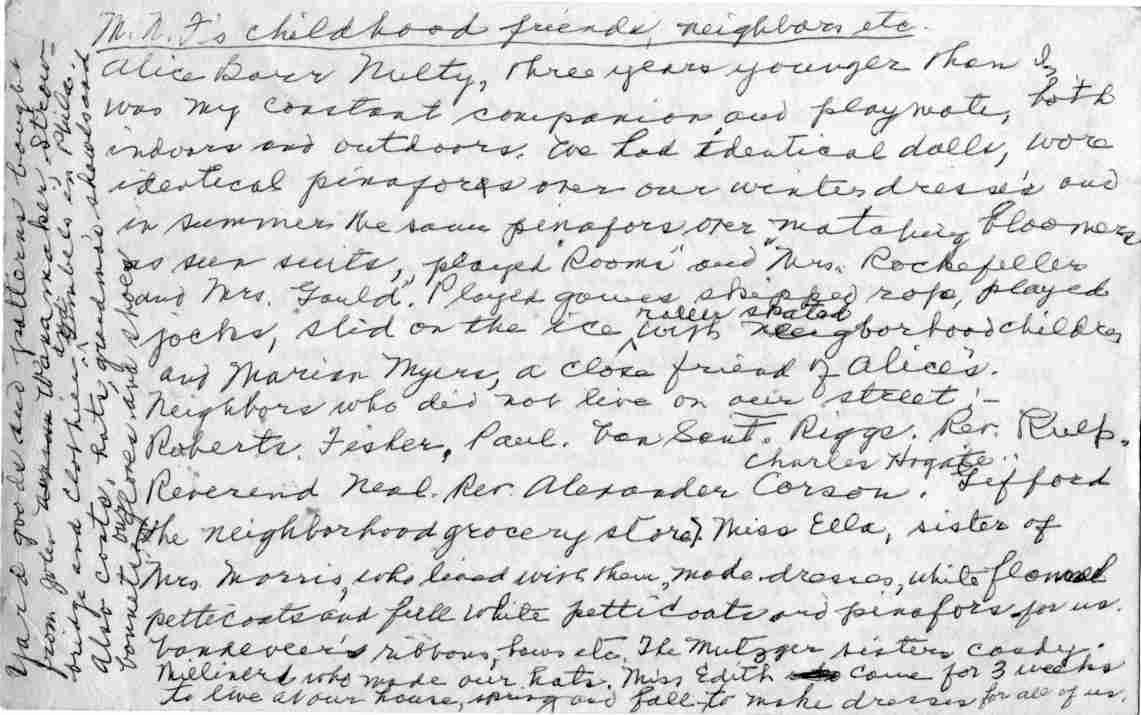 M. N. F's childhood friends, neighbors etc.
Alice Barr Nulty, three years younger than I,
was my constant companion and playmate, both
indoors and outdoors. We had identical dolls, wore
identical pinafores over our winter dresses and
in summer the same pinafors over matching bloomers
as sun suits, played "Rooms" and "Mrs. Rockefeller
and Mrs. Gould". Played games, skipped rope, played
jacks, slid on the ice, roller skated with neighborhood children
and Marion Myers, a close friend of Alice's.
Neighbors who did not live on our street:-
Roberts. Fisher, Paul. Van Sant. Riggs. Rev. Rulp.
Reverend Neal. Rev. Alexander Corson. Charles Hogate. Gifford
(the neighborhood grocery store). Miss Ella, sister of
Mrs. Morris, who lived with them, made dresses, white flannel
petticoats and full white petticoats and pinafors for us.
Vandeveer's ribbons, bows etc. The Metzger sisters candy.
Milliners who made our hats. Miss Edith came for 3 weeks
to live at our house, spring and fall - to make dresses for all of us.
Yard goods and patterns bought
from John Wanamaker, Straw-
bridge and Clothier, Gimbels in Phila.
Also coats, hats, grandma's shawls and
bonnets, our gloves and shoes